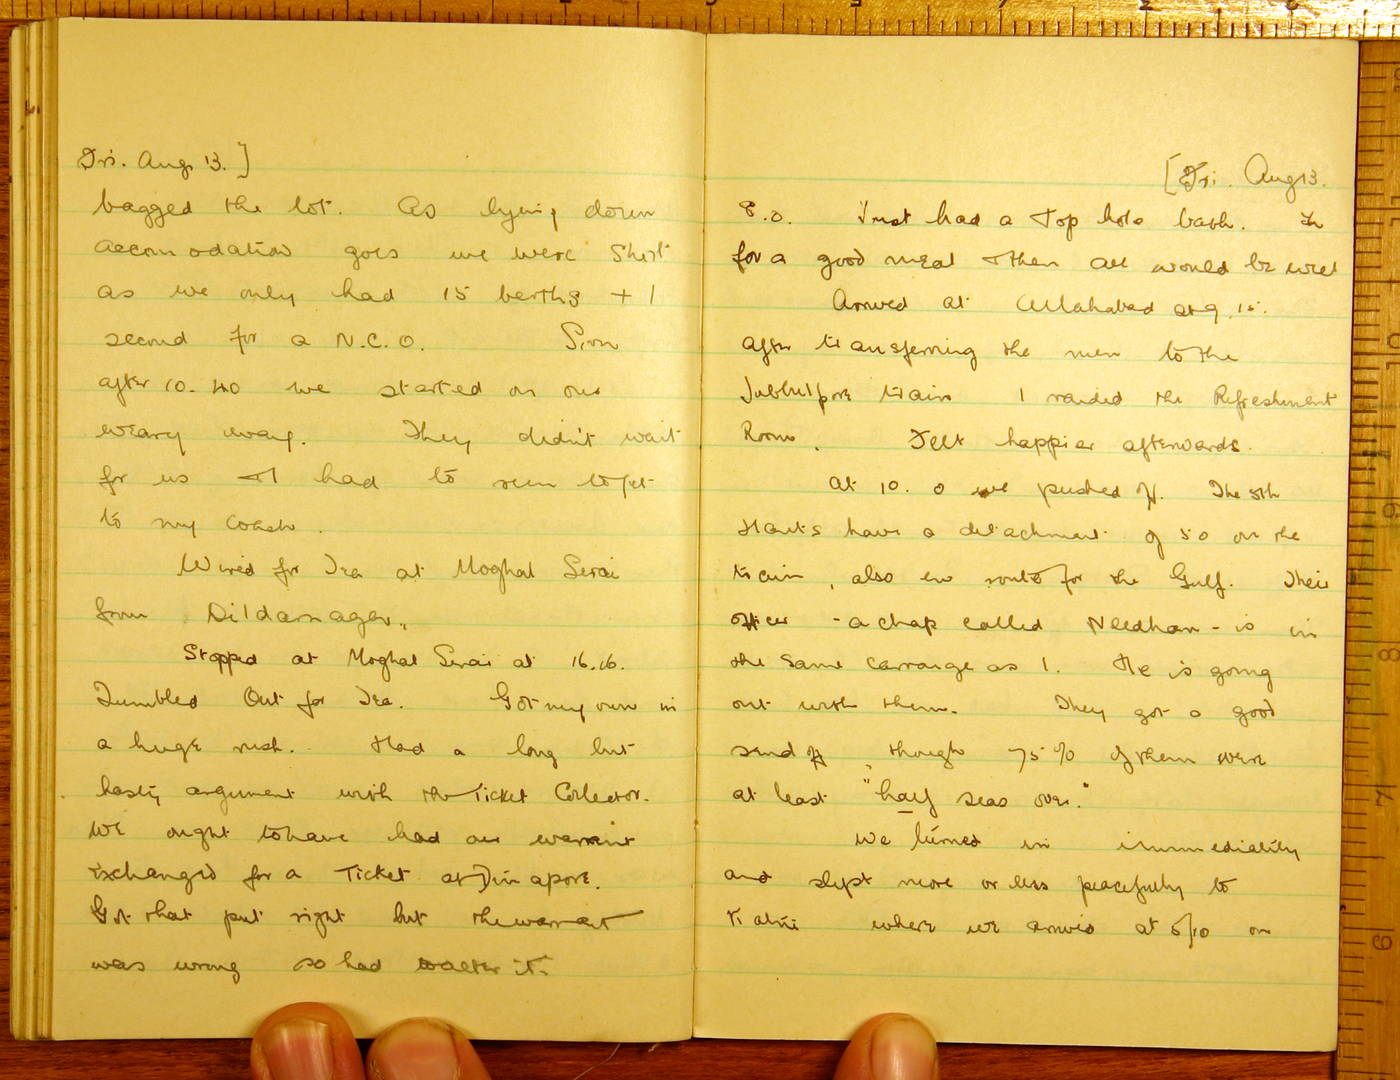 Fri. Aug 13. ]
bagged the lot. As lying down
accomodation goes we were short
as we only had 15 berths + 1
second for a N.C.O. Soon
after 10.40 we started on our
weary way. They didn't wait
for us + I had to run to get
to my coach.
Wired for Tea at Moghal Serai
from Dildarnagar.
Stopped at Moghal Serai at 16.16.
Tumbled Out for Tea. Got my own in
a huge rush. Had a long but
hasty argument with the Ticket Collector.
We ought to have had our warrant
exchanged for a Ticket at Dinapore.
Got that put right but the warrant
was wrong so had to alter it.
[Fri. Aug 13.
8.0. Just had a top hole bath.
for a good meal + then all would be well
Arrived at Allahabad at 9.15.
after transferring the men to the
Jubbulpore train I raided the Refreshment
Room. Felt happier afterwards.
At 10.0 we pushed off. The 5th
Hants have a detachment of 50 on the
train, also en route for the Gulf. Their
officer - a chap called Needham - is in
the same carraige as I. He is going
out with them. They got a good
send off, though 75% of them were
at least "half seas over."
We turned in immediatily
and slept more or less peacefully to
Katni where we arrived at 6/10 on